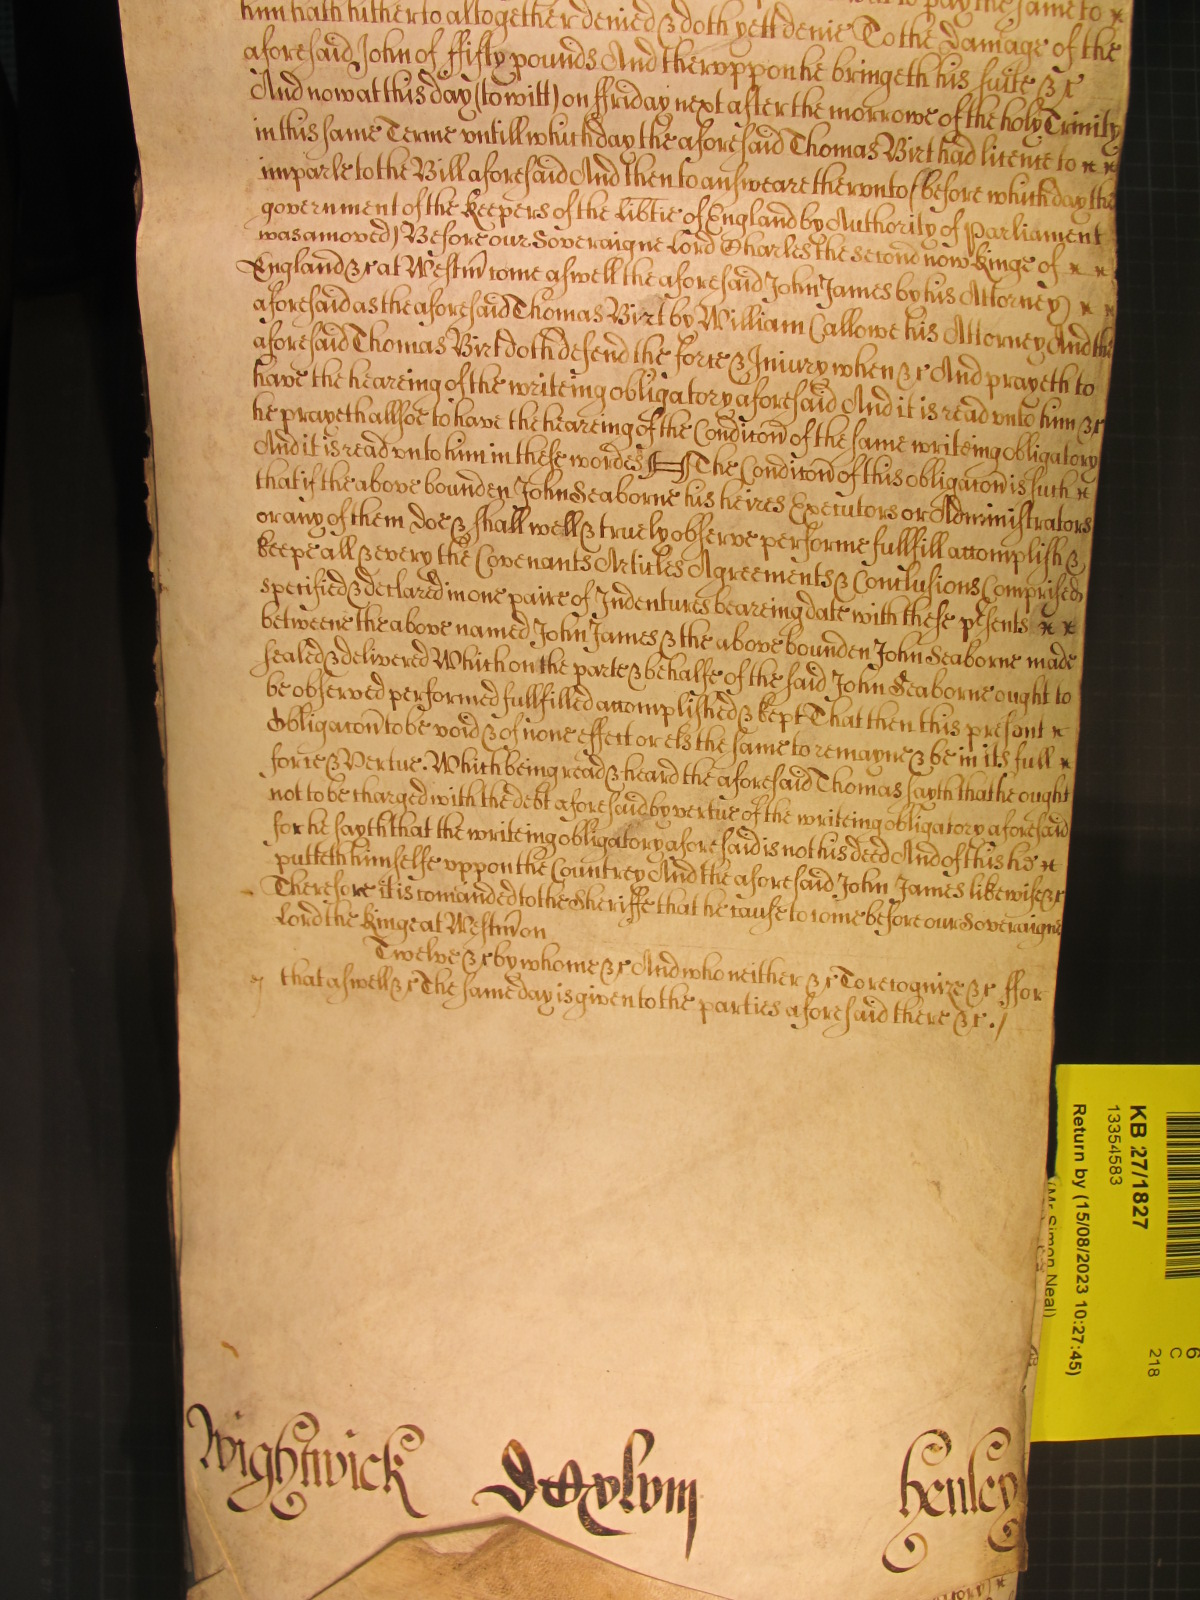 him hath hitherto altogether denied & doth yett denie To the Damage of the
aforesaid John of ffifty pounds And therevppon he bringeth his suite &c
And now at this day (to witt) on ffriday next after the morrowe of the holy Trinity
in this same Terme vntill which day the aforesaid Thomas Birt had licence to
imparle to the Bill aforesaid And then to answeare therevnto (before which day the
government of the Keepers of the libtie of England by Authority of Parliament
was amoved) Before our Soveraigne Lord Charles the second now Kinge of
England &c at Westm̃ come aswell the aforesaid John James by his Attorney
aforesaid as the aforesaid Thomas Birt by William Callowe his Attorney And the
aforesaid Thomas Birt doth defend the force & Iniury when &c And prayeth to
have the heareing of the writeing obligatory aforesaid And it is read vnto him &c
he prayeth allsoe to have the heareing of the Condicõn of the same writeing obligatory
And it is read vnto him in these wordes The Condicõn of this obligacõn is such
that if the above bounden John Seaborne his heires Executors or Administrators
or any of them doe & shall well & truely observe performe fullfill accomplish &
keepe all & every the Covenants Articles Agreements & Conclusions Comprised
specified & declared in one paire of Indentures beareing date with these psents
betweene the above named John James & the above bounden John Seaborne made
sealed & delivered Which on the parte & behalfe of the said John Seaborne ought to
be observed performed fullfilled accomplished & kept That then this present
Obligacõn to be void & of none effect or els the same to remayne & be in its full
force & Vertue. Which being read & heard the aforesaid Thomas sayth that he ought
not to be charged with the debt aforesaid by vertue of the writeing obligatory aforesaid
for he sayth that the writeing obligatory aforesaid is not his deed And of this he
putteth himselfe vppon the Countrey And the aforesaid John James likewise &c
Therefore it is comanded to the Sheriffe that he cause to come before our Soveraigne
Lord the Kinge at Westm̃ on
Twelve &c by whome &c And who neither &c To recognize &c ffor
that aswell &c The same day is given to the parties aforesaid there &c.
Wightwick
Henley
KB 27/1827
13354583
Return by (15/08/2023 10:27:45)
(Mr Simon Neal)
6
C
218